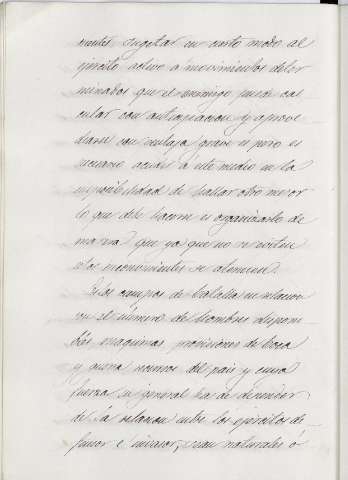 nientes, sugetar en cierto modo al
ejército activo á movimientos deter
minados que el enemigo pueda cal
cular con anticipacion y aprove
charse con ventaja grave, pero es
necesario acudir á este medio en la
imposibilidad de hallar otro mejor
lo que debe hacerse es organizarlo de
manera que ya que no se eviten
estos inconvenientes se atenuen.
Estos campos de batalla en relacion
con el número de hombres disponi-
bles máquinas, provisiones de boca
y guerra recursos del pais y cuya
fuerza en general ha de depender
de la relacion entre los ejércitos de-
fensor é invasor, sean naturales ó